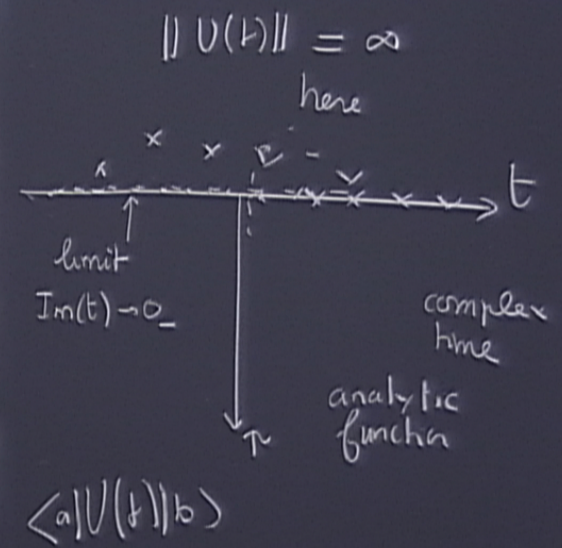 || U(t) || = ∞
here
t
limit
Im(t) → 0_
complex
time
analytic
function
τ
<a|U(t)|b>